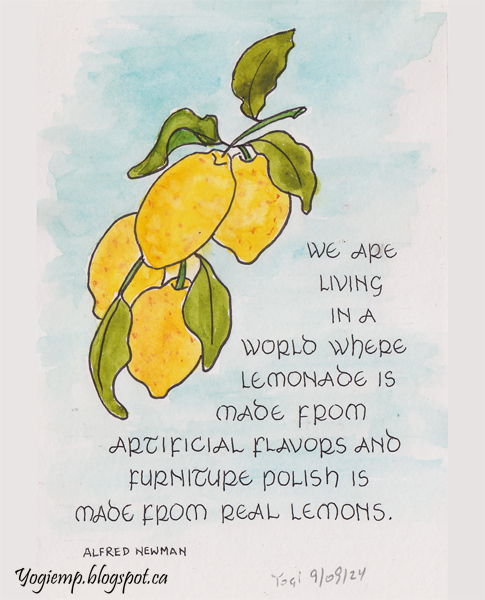 WE ARE
LIVING
IN A
WORLD WHERE
LEMONADE IS
MADE FROM
ARTIFICIAL FLAVORS AND
FURNITURE POLISH IS
MADE FROM REAL LEMONS.
ALFRED NEWMAN
Yogiemp.blogspot.ca
Yogi 9/09/24